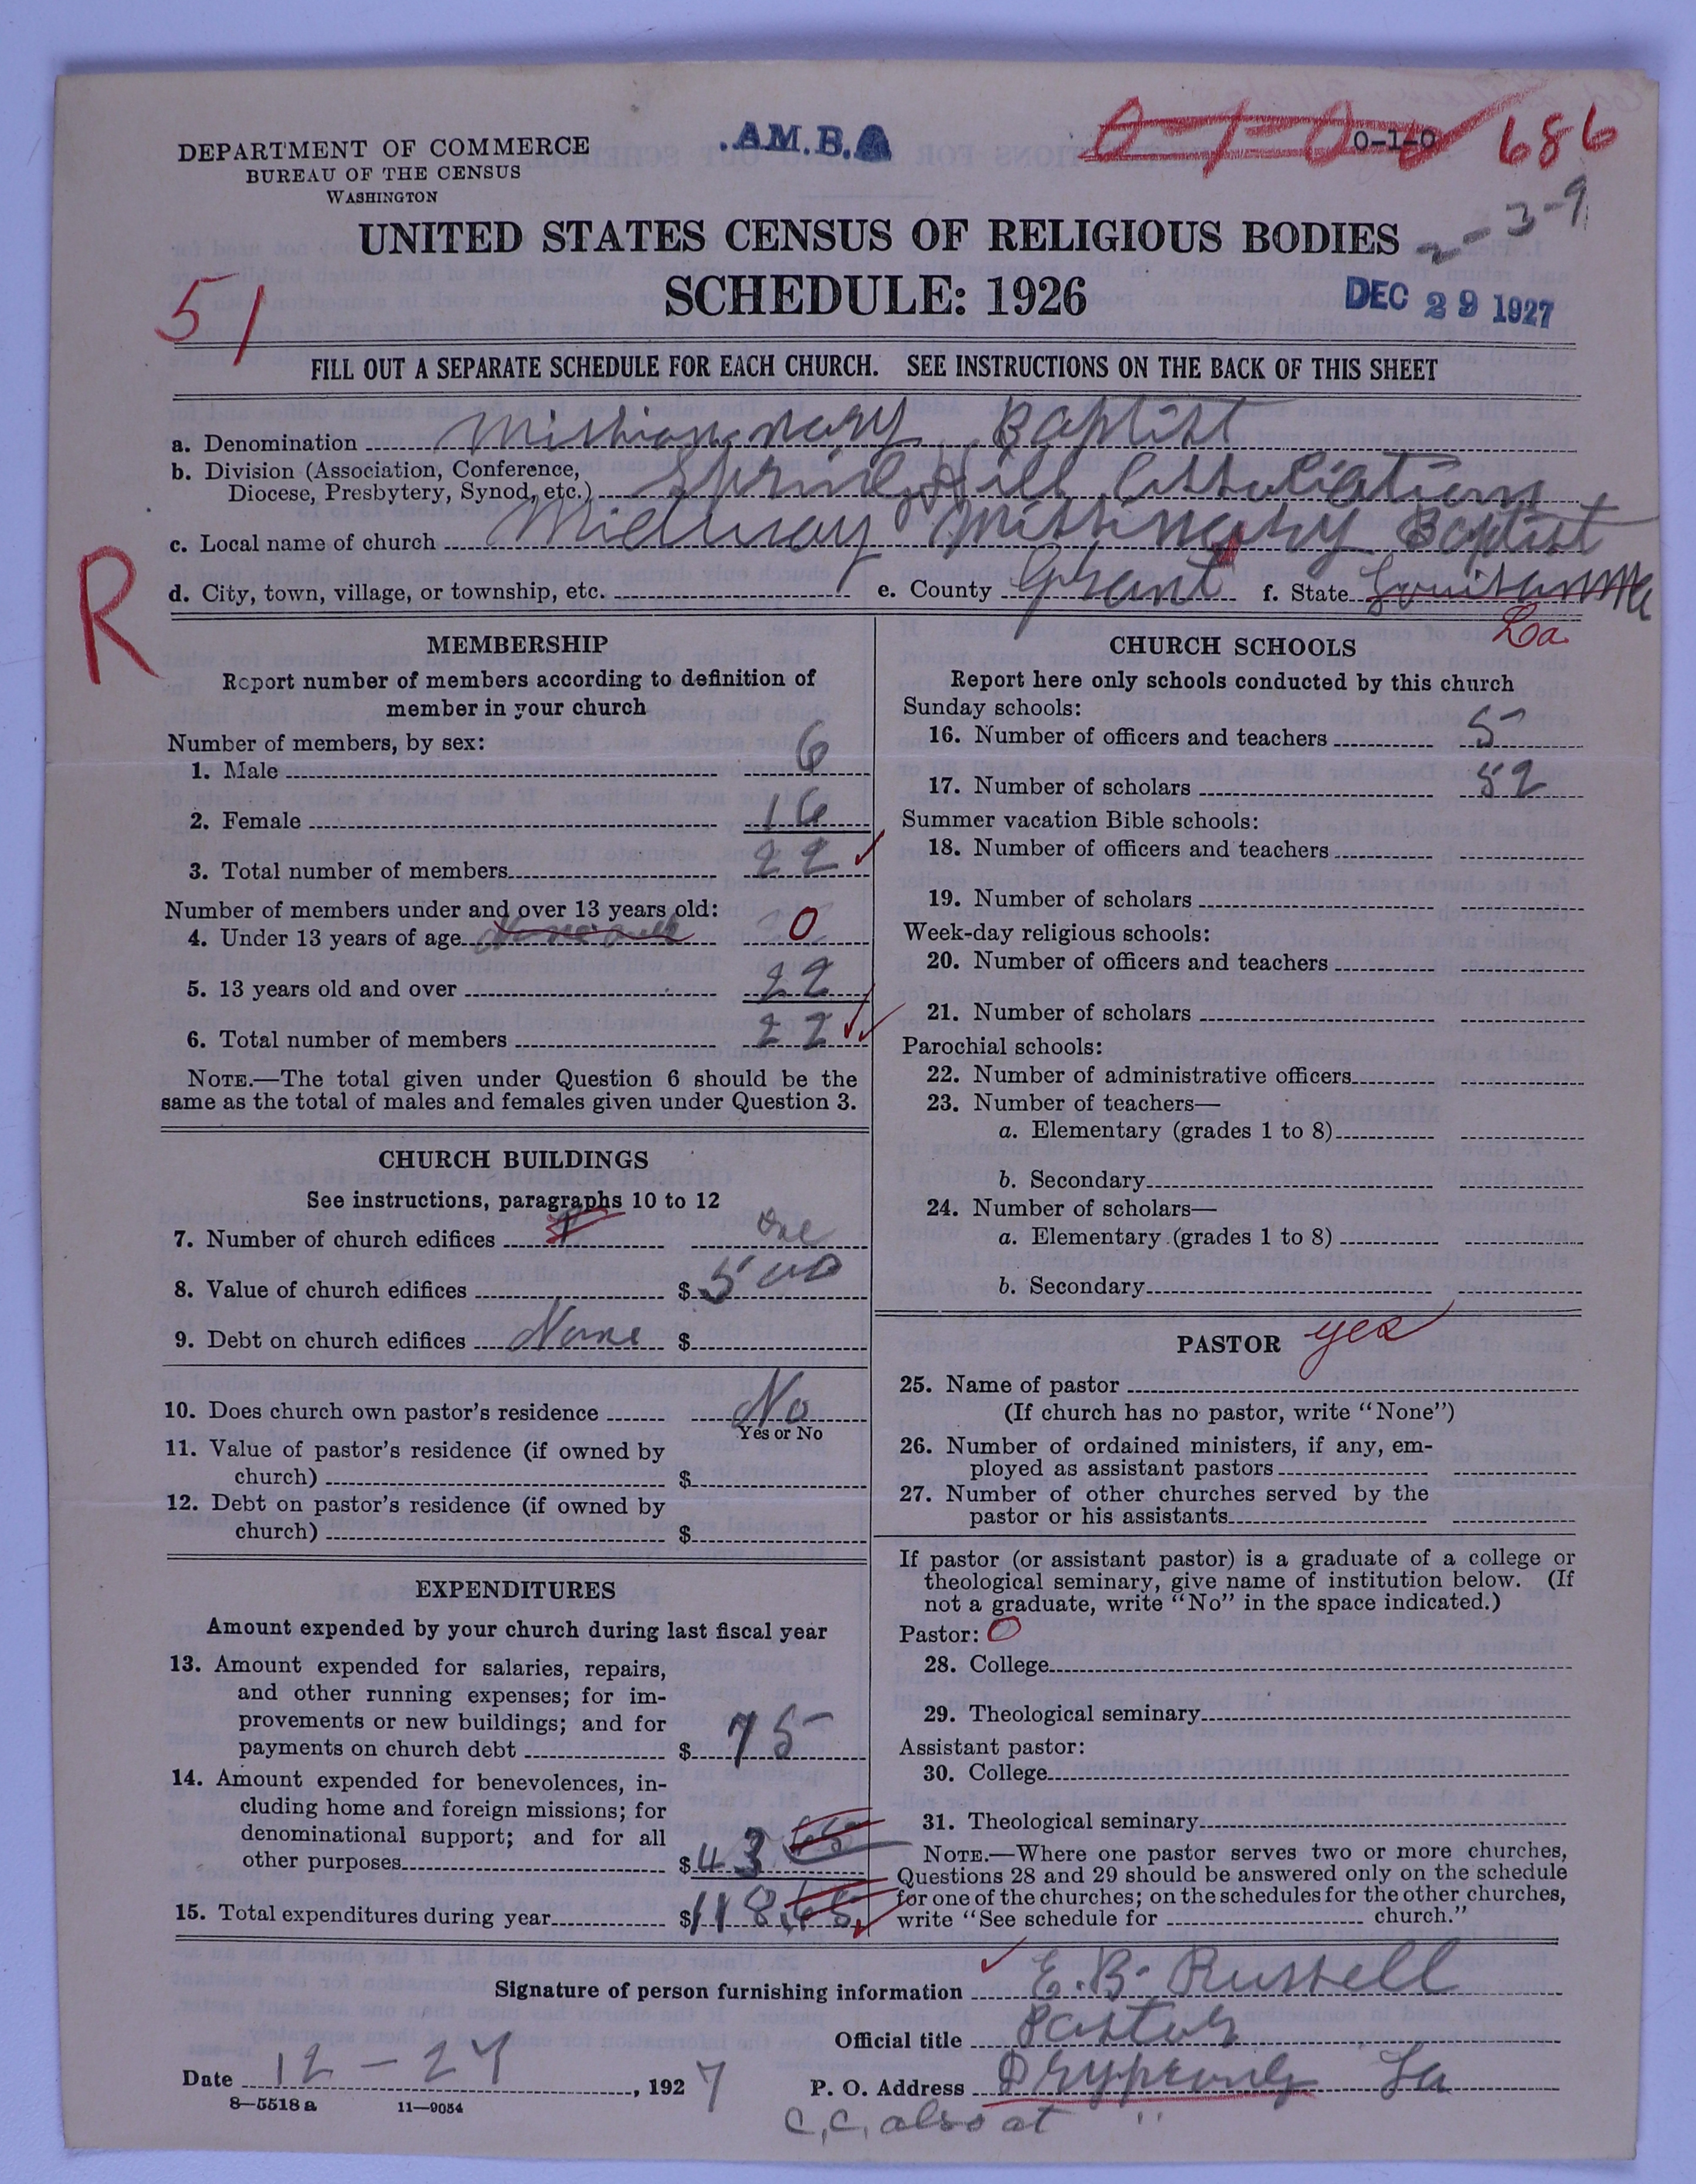 DEPARTMENT OF COMMERCE
BUREAU OF THE CENSUS
WASHINGTON
.AM.B.A
0-1-0
0-1-0
686
2-3-9
UNITED STATES CENSUS OF RELIGIOUS BODIES
SCHEDULE: 1926
DEC 29 1927
51
FILL OUT A SEPARATE SCHEDULE FOR EACH CHURCH. SEE INSTRUCTIONS ON THE BACK OF THIS SHEET
a. Denomination Missionary Baptist
b. Division (Association, Conference,
Diocese, Presbytery, Synod, etc.) Spring Hill Association
c. Local name of church Midway Missionary Baptist
d. City, town, village, or township, etc. e. County Grant f. State Louisanna
La.
R
MEMBERSHIP
Report number of members according to definition of
member in your church
Number of members, by sex:
1. Male 6
2. Female 16
3. Total number of members 22
Number of members under and over 13 years old:
4. Under 13 years of age 0
5. 13 years old and over 22
6. Total number of members 22
NOTE.—The total given under Question 6 should be the
same as the total of males and females given under Question 3.
CHURCH BUILDINGS
See instructions, paragraphs 10 to 12
7. Number of church edifices 1 one
8. Value of church edifices $ 500
9. Debt on church edifices None $
10. Does church own pastor's residence No
Yes or No
11. Value of pastor's residence (if owned by
church) $
12. Debt on pastor's residence (if owned by
church) $
EXPENDITURES
Amount expended by your church during last fiscal year
13. Amount expended for salaries, repairs,
and other running expenses; for im-
provements or new buildings; and for
payments on church debt $ 75
14. Amount expended for benevolences, in-
cluding home and foreign missions; for
denominational support; and for all
other purposes $ 43 65
15. Total expenditures during year $ 118.65
CHURCH SCHOOLS
Report here only schools conducted by this church
Sunday schools:
16. Number of officers and teachers 5
17. Number of scholars 52
Summer vacation Bible schools:
18. Number of officers and teachers
19. Number of scholars
Week-day religious schools:
20. Number of officers and teachers
21. Number of scholars
Parochial schools:
22. Number of administrative officers
23. Number of teachers—
a. Elementary (grades 1 to 8)
b. Secondary
24. Number of scholars—
a. Elementary (grades 1 to 8)
b. Secondary
PASTOR yes
25. Name of pastor
(If church has no pastor, write "None")
26. Number of ordained ministers, if any, em-
ployed as assistant pastors
27. Number of other churches served by the
pastor or his assistants
If pastor (or assistant pastor) is a graduate of a college or
theological seminary, give name of institution below. (If
not a graduate, write "No" in the space indicated.)
Pastor: 0
28. College
29. Theological seminary
Assistant pastor:
30. College
31. Theological seminary
NOTE.—Where one pastor serves two or more churches,
Questions 28 and 29 should be answered only on the schedule
for one of the churches; on the schedules for the other churches,
write "See schedule for church."
Signature of person furnishing information E. B. Russell
Official title Pastor
Date 12 - 27, 1927 P. O. Address La
8-5518a 11-9054
C, C, also at "